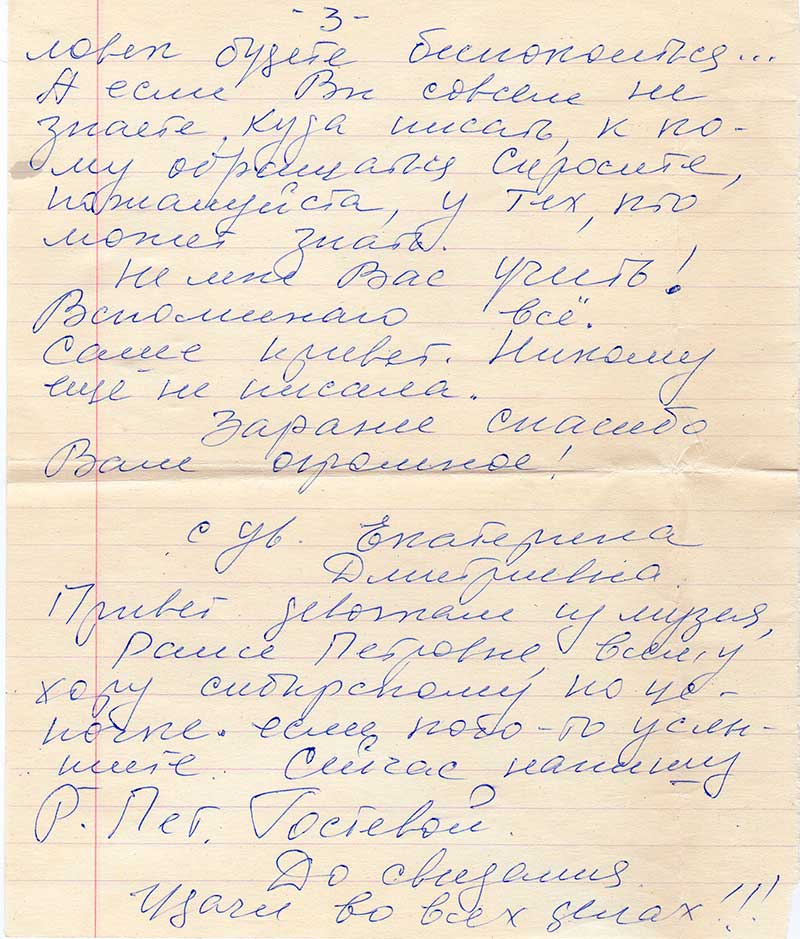 - 3 -
ловек будете беспокоиться...
А если Вы совсем не
знаете, куда писать, к ко-
му обращаться спросите,
пожалуйста, у тех, кто
может знать.
Не мне Вас учить!
Вспоминаю всё.
Саше привет. Никому
ещё не писала.
Заранее спасибо
Вам огромное!
с ув. Екатерина
Дмитриевна.
Привет девочкам из музея,
Раисе Петровне, всему
хору сибирскому по це-
почке. если кого-то услы-
шите. Сейчас напишу
Р. Пет. Гостевой.
До свидания.
Удачи во всех делах!!!